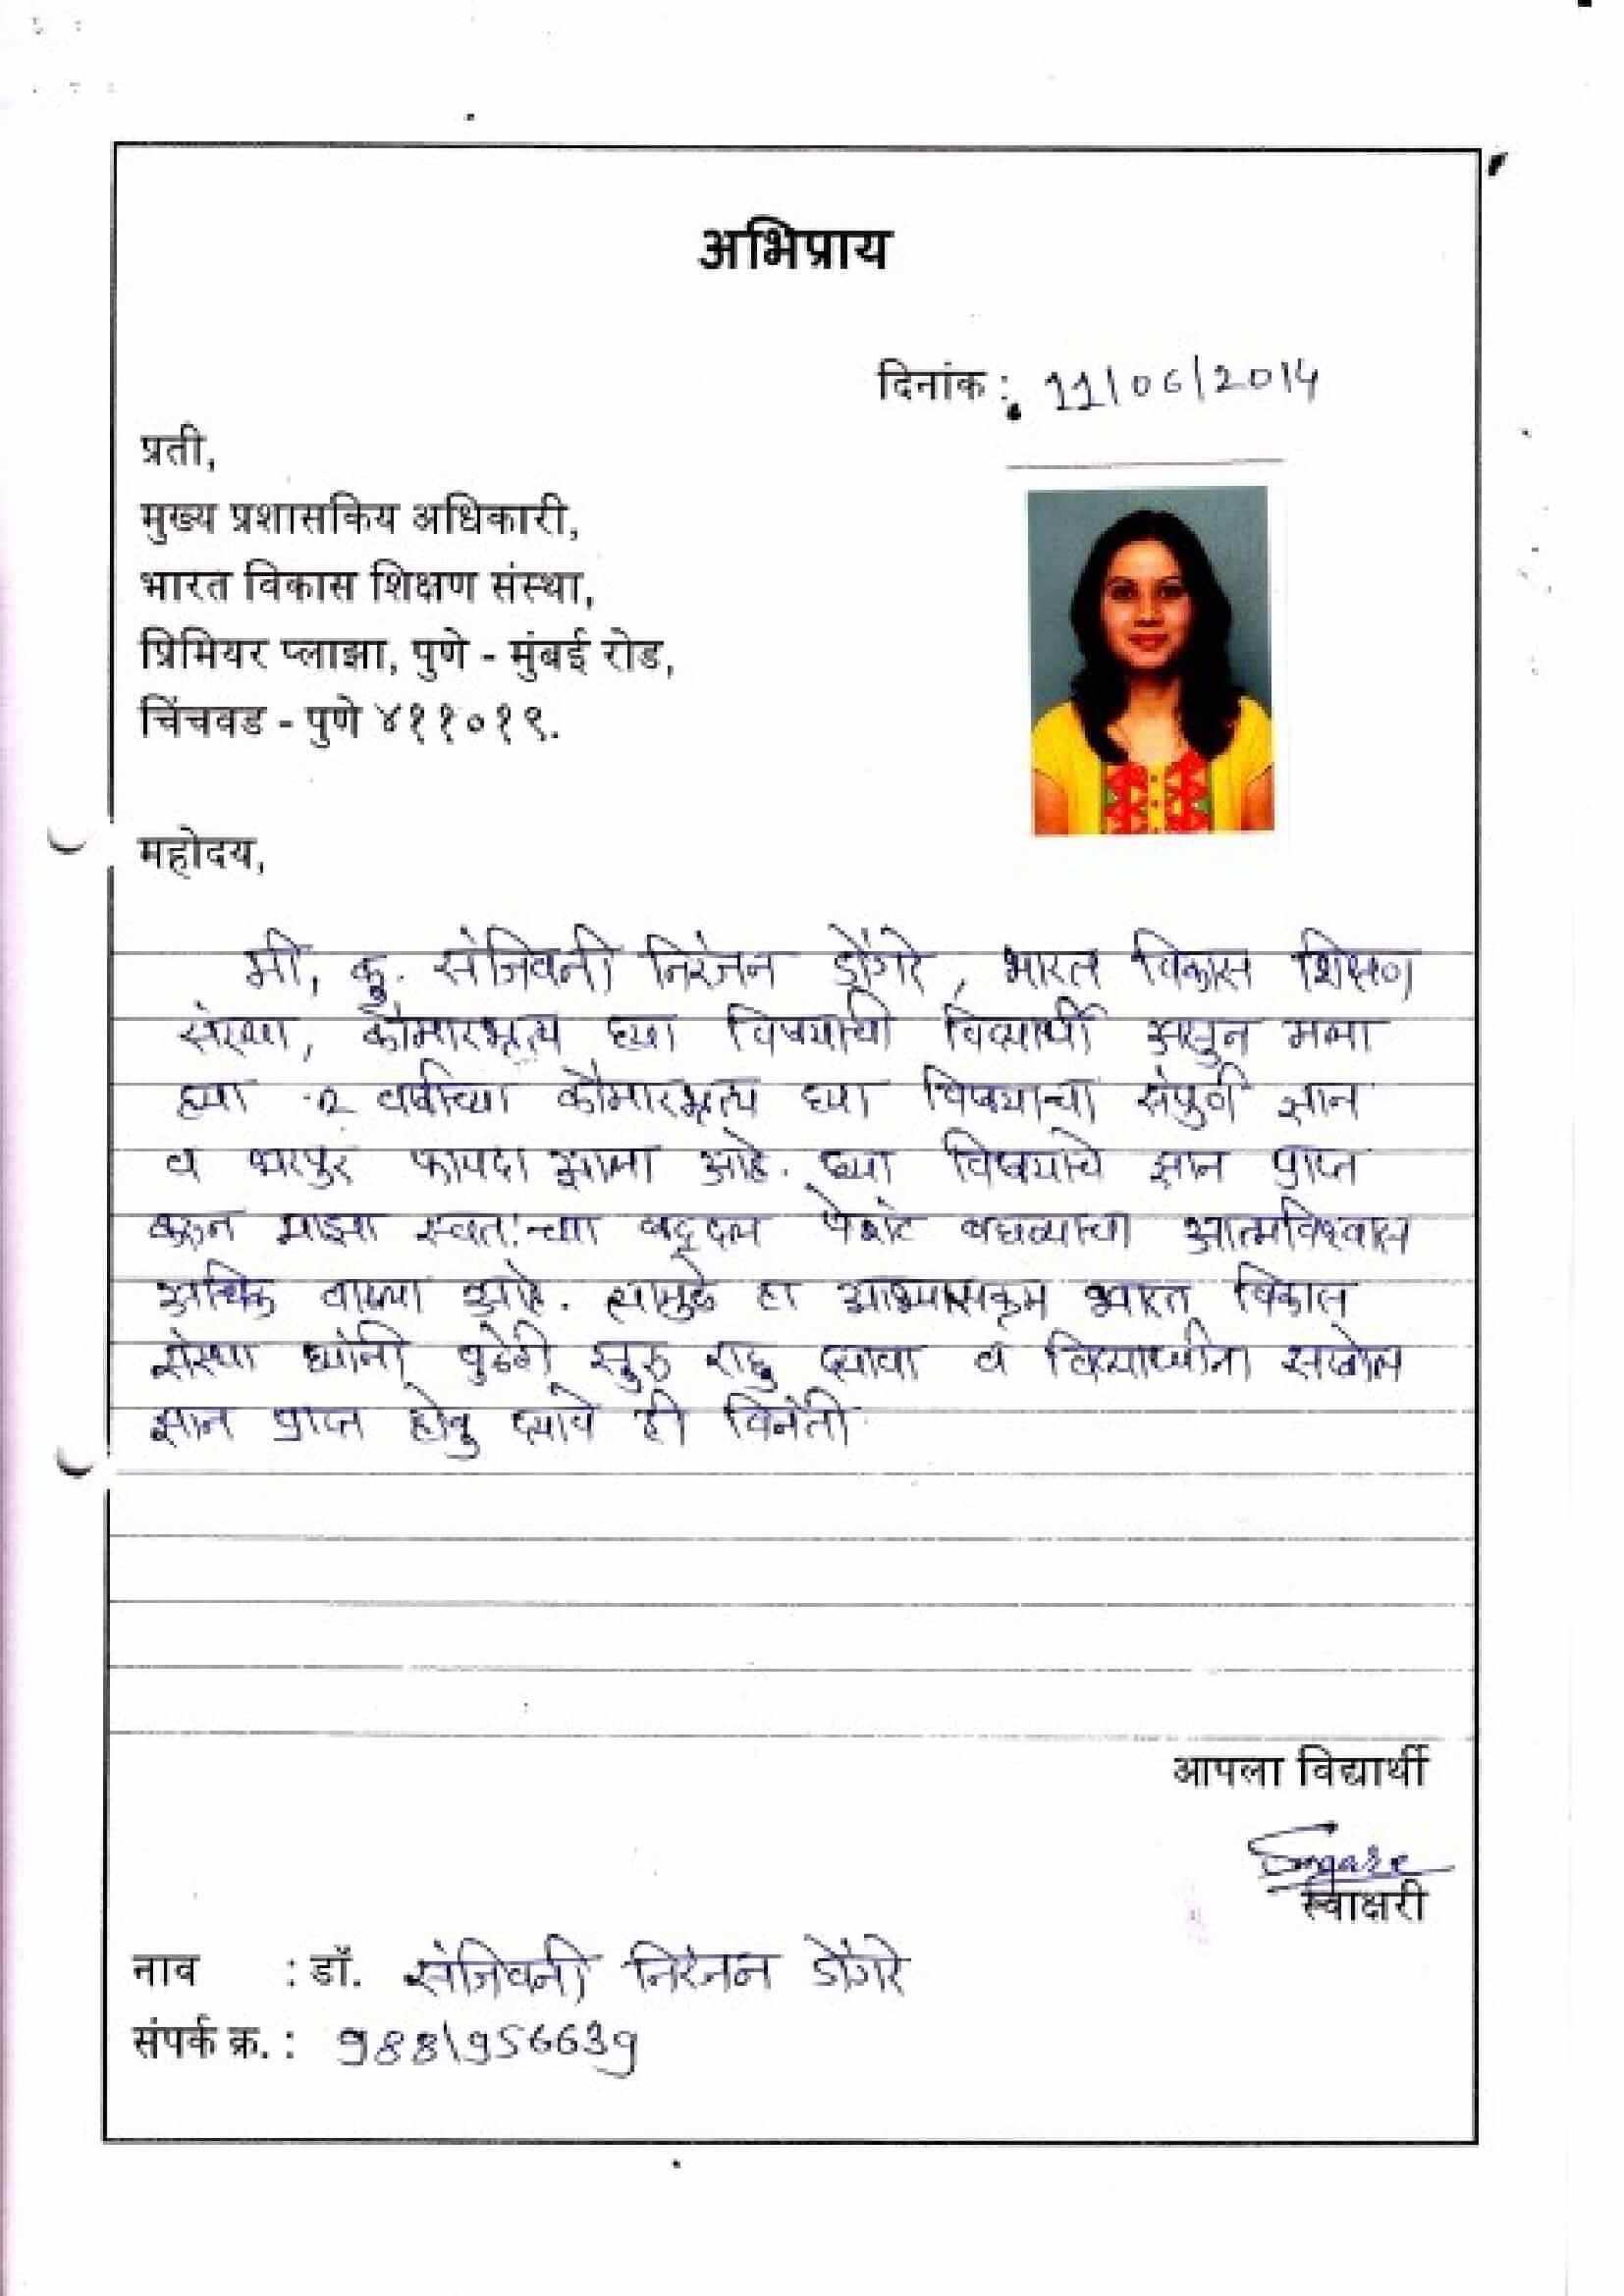 अभिप्राय
दिनांक : 11/06/2014
प्रती,
मुख्य प्रशासकिय अधिकारी,
भारत विकास शिक्षण संस्था,
प्रिमियर प्लाझा, पुणे - मुंबई रोड,
चिंचवड - पुणे ४११०१९.
महोदय,
मी, कु. संजिवनी निरंजन डोंगरे, भारत विकास शिक्षण
संस्था, कौमारभृत्य ह्या विषयाची विद्यार्थी असुन मला
ह्या २ वर्षाच्या कौमारभृत्य ह्या विषयाचा संपुर्ण ज्ञान
व भरपुर फायदा झाला आहे. ह्या विषयाचे ज्ञान प्राप्त
करुन माझा स्वत:च्या बद्दल पेशंट बघण्याचा आत्मविश्वास
अधिक वाढला आहे. त्यामुळे हा अभ्यासक्रम भारत विकास
संस्था ह्यांनी पुढेही सुरु राहु द्यावा व विद्यार्थ्यांना सखोल
ज्ञान प्राप्त होवु द्यावे ही विनंती
आपला विद्यार्थी
Dongare
स्वाक्षरी
नाव : डॉ. संजिवनी निरंजन डोंगरे
संपर्क क्र. : 9881956639